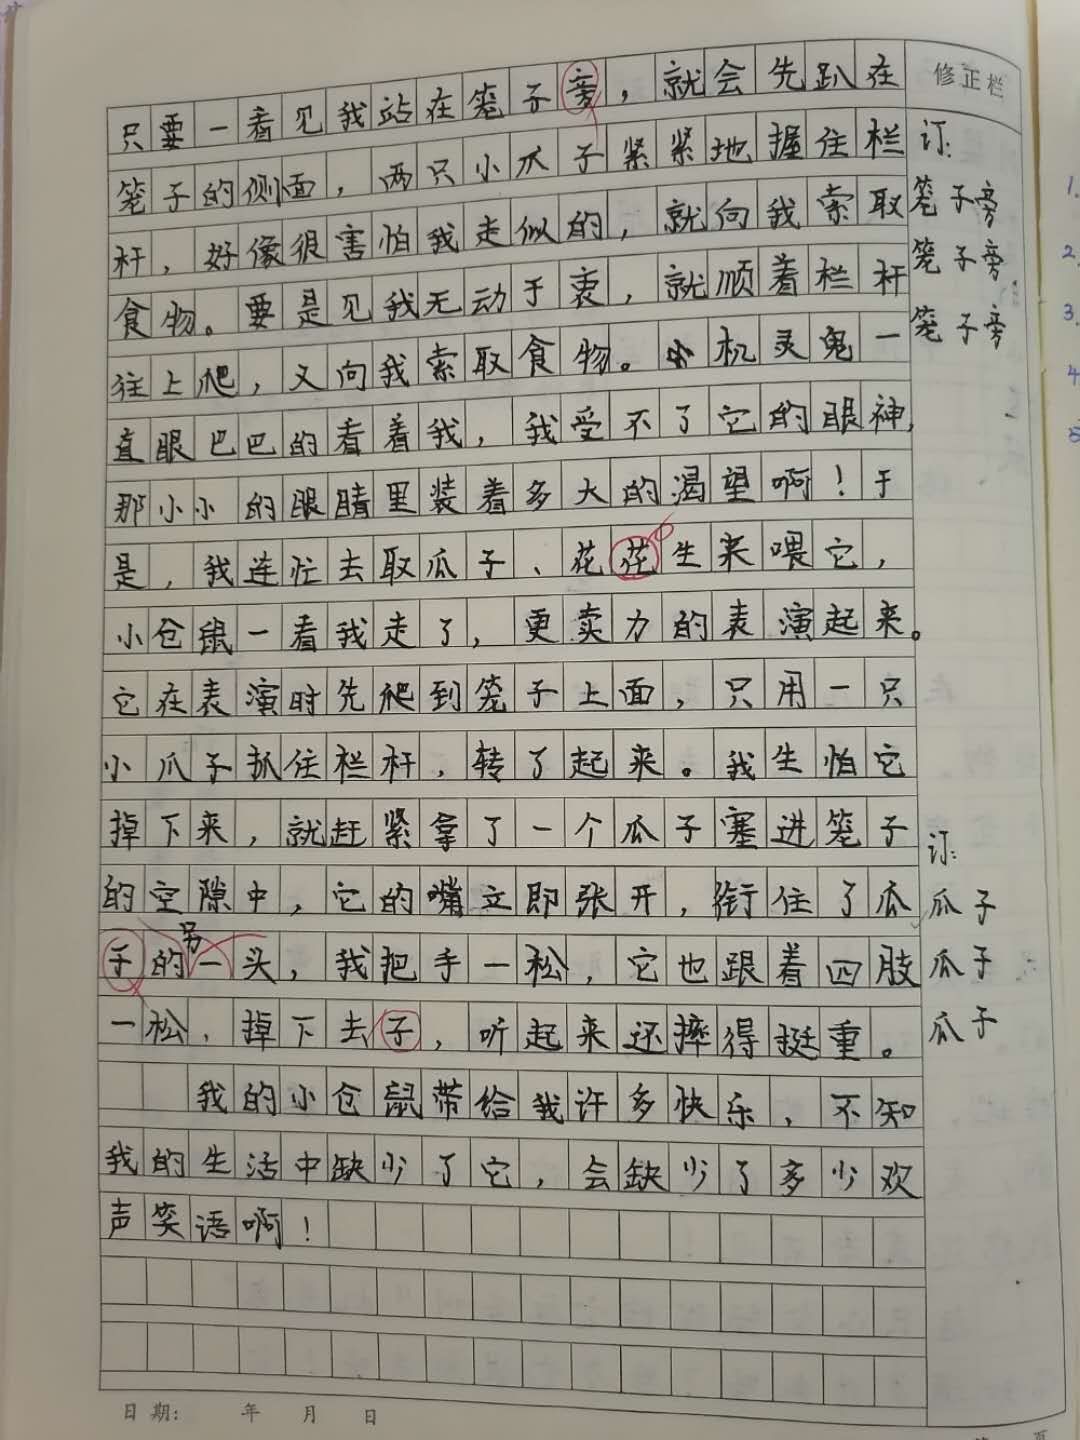 修正栏
只要一看见我站在笼子旁，就会先趴在
笼子的侧面，两只小爪子紧紧地握住栏
杆，好像很害怕我走似的，就向我索取
食物。要是见我无动于衷，就顺着栏杆
往上爬，又向我索取食物。小机灵鬼一
直眼巴巴的看着我，我受不了它的眼神，
那小小的眼睛里装着多大的渴望啊！于
是，我连忙去取瓜子、花花生来喂它，
小仓鼠一看我走了，更卖力的表演起来。
它在表演时先爬到笼子上面，只用一只
小爪子抓住栏杆，转了起来。我生怕它
掉下来，就赶紧拿了一个瓜子塞进笼子
的空隙中，它的嘴立即张开，衔住了瓜
子的另一头，我把手一松，它也跟着四肢
一松，掉下去子，听起来还摔得挺重。
我的小仓鼠带给我许多快乐，不知
我的生活中缺少了它，会缺少了多少欢
声笑语啊！
订：
笼子旁
笼子旁
笼子旁
订：
瓜子
瓜子
瓜子
1.
2.
3.
4
日期： 年 月 日